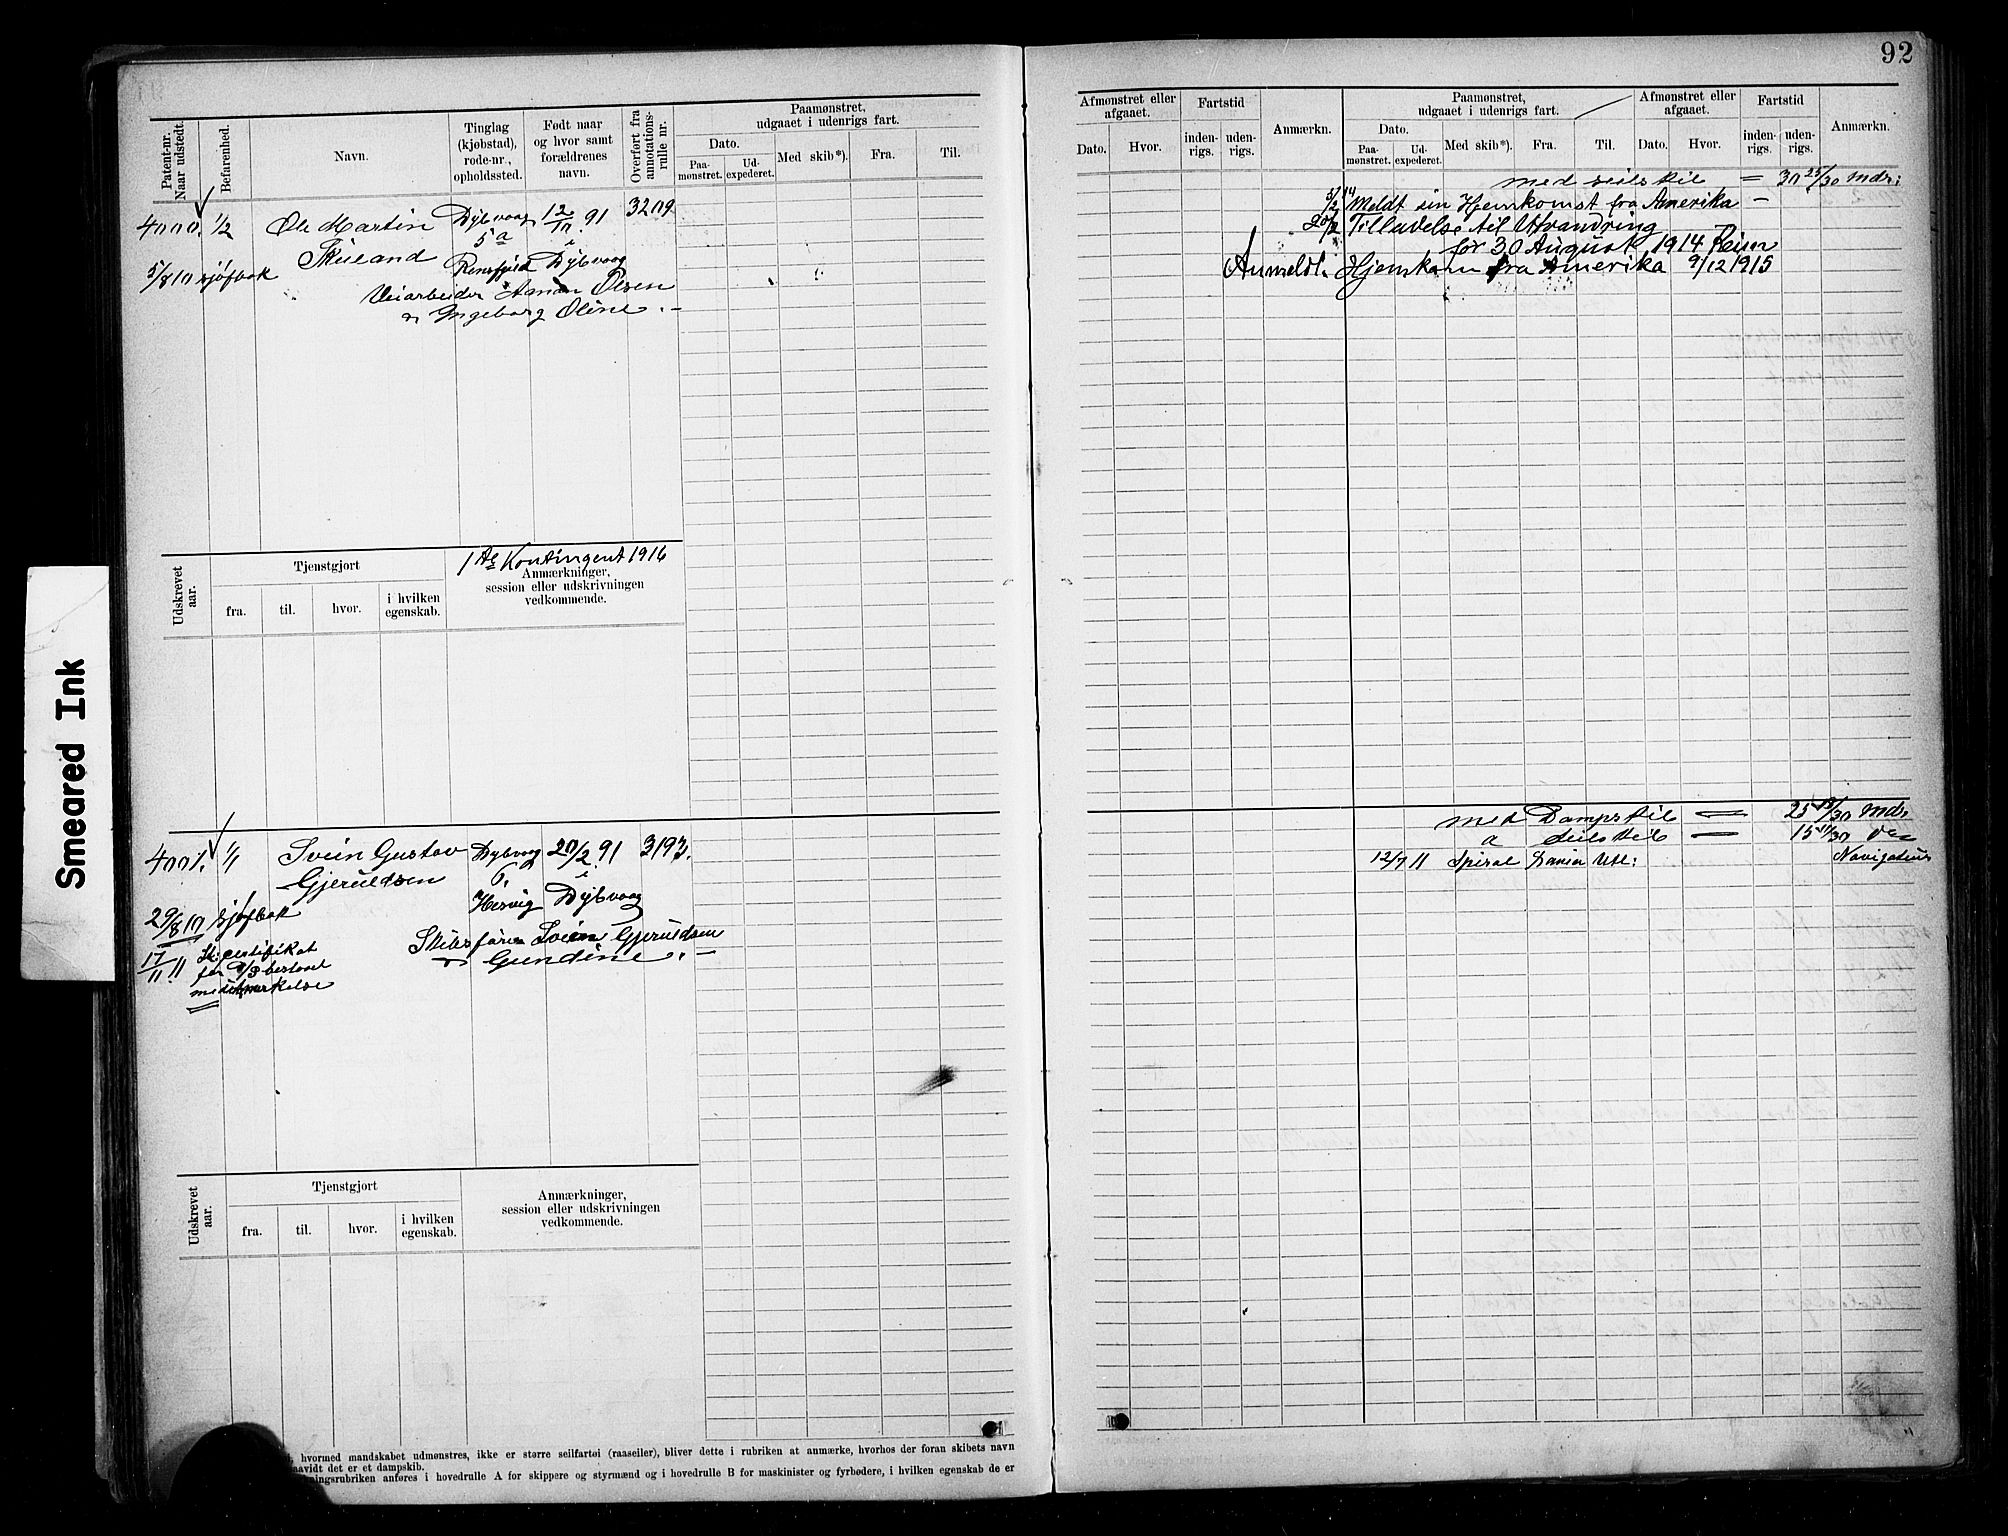 92
Patent-nr. Naar udstedt.
Befarenhed.
Navn.
Tinglag (kjøbstad), rode-nr., opholdssted.
Født naar og hvor samt forældrenes navn.
Overført fra annotations-rulle nr.
Paamønstret, udgaaet i udenrigs fart.
Dato.
Paa-mønstret.
Ud-expederet.
Med skib*).
Fra.
Til.
4000. 1/2 Ole Martin Dybvaag 12/10 91 3209
Skueland 5a i
5/8 10 sjøfbok Dybvaag
Veiarbeider Aanon Olsen
Ingeborg Oline.-
1ste Kontingent 1916
Udskrevet aar.
Tjenstgjort
fra.
til.
hvor.
i hvilken egenskab.
Anmærkninger, session eller udskrivningen vedkommende.
4001. 1/1 Svein Gustav Dybvag 20/2 91 3193.
Gjeruldsen 6, i
29/8 10 sjøfbok Hesvig Dybvaag
Skibsfører Svein Gjeruldsen
Gundine.-
17/11 11 St: certifikat
for
med utmerkelse
Udskrevet aar.
Tjenstgjort
fra.
til.
hvor.
i hvilken egenskab.
Anmærkninger, session eller udskrivningen vedkommende.
hvormed mandskabet udmønstres, ikke er større seilfartøi (raaseiler), bliver dette i rubriken at anmærke, hvorhos der foran skibets navn
avidt det er et dampskib.
ningsrubriken anføres i hovedrulle A for skippere og styrmænd og i hovedrulle B for maskinister og fyrbødere, i hvilken egenskab de er
Afmønstret eller afgaaet.
Dato.
Hvor.
Fartstid
inden-rigs.
uden-rigs.
Anmærkn.
Paamønstret, udgaaet i udenrigs fart.
Dato.
Paa-mønstret.
Ud-expederet.
Med skib*).
Fra.
Til.
Afmønstret eller afgaaet.
Dato.
Hvor.
Fartstid
inden-rigs.
uden-rigs.
Anmærkn.
med seilskib = 30 25/30 mdr:
5/2 14 Meldt sin Hjemkomst fra Amerika -
20/2 Tilladelse til Utvandring
før 30 August 1914
Anmeldt. Hjemkom fra Amerika 9/12 1915
med Dampskib = 25 15/30 mdr
seilskib = 15
12/7 11 Spiral
Smeared Ink